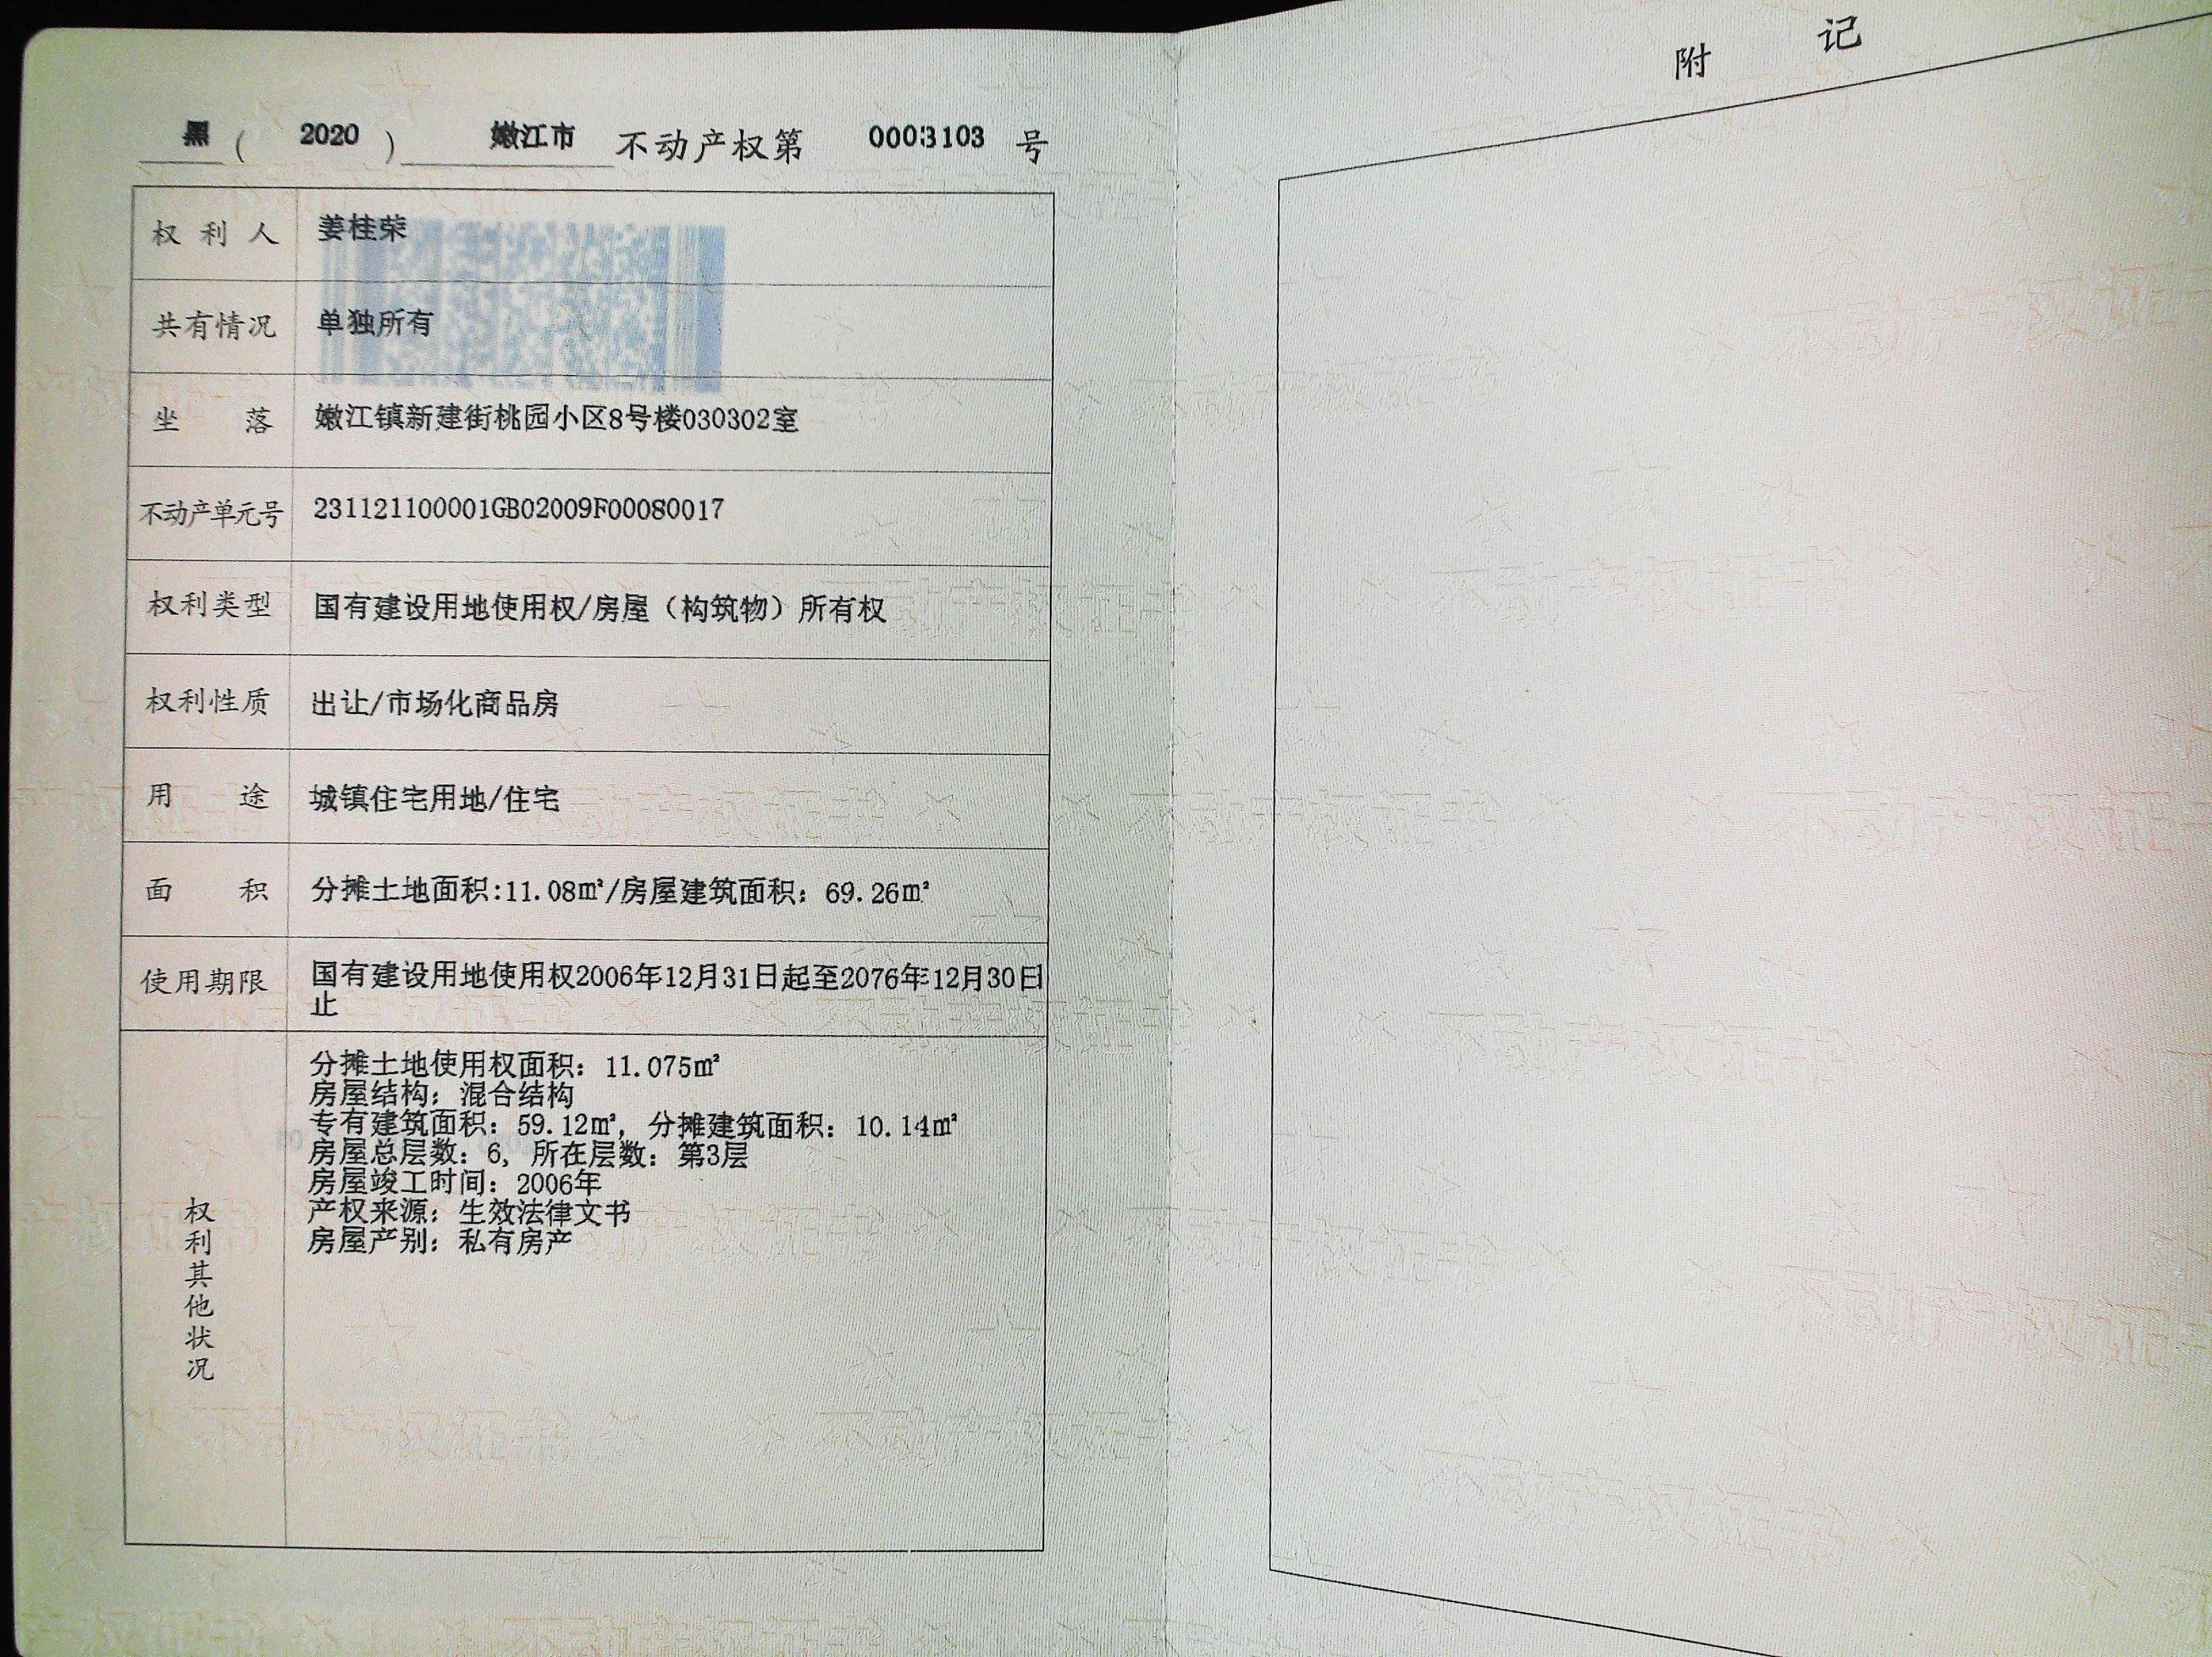 黑 ( 2020 ) 嫩江市 不动产权第 0003103 号
权利人 姜桂荣
共有情况 单独所有
坐落 嫩江镇新建街桃园小区8号楼030302室
不动产单元号 231121100001GB02009F00080017
权利类型 国有建设用地使用权/房屋（构筑物）所有权
权利性质 出让/市场化商品房
用途 城镇住宅用地/住宅
面积 分摊土地面积:11.08㎡/房屋建筑面积：69.26㎡
使用期限 国有建设用地使用权2006年12月31日起至2076年12月30日
止
权利其他状况
分摊土地使用权面积：11.075㎡
房屋结构：混合结构
专有建筑面积：59.12㎡，分摊建筑面积：10.14㎡
房屋总层数：6，所在层数：第3层
房屋竣工时间：2006年
产权来源：生效法律文书
房屋产别：私有房产
附记